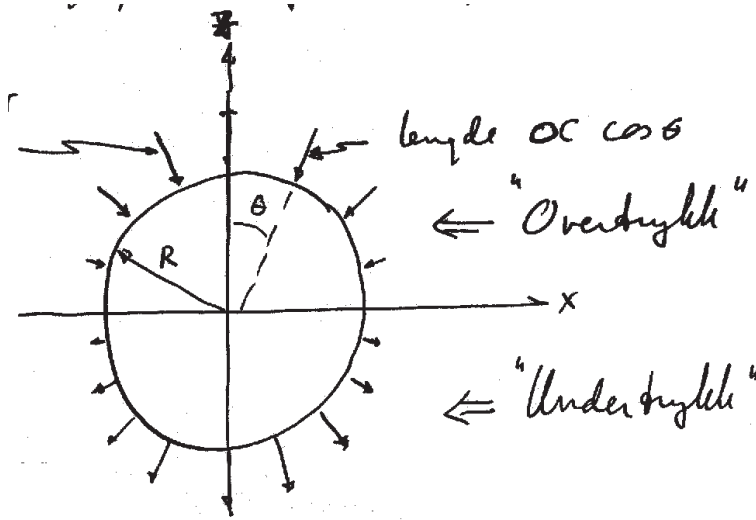 z
lengde ∝ cos θ
θ
"Overtrykk"
R
x
"Undertrykk"